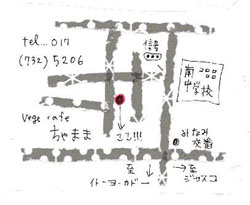 tel...017
(732)5206
信金
南
中学校
vege cafe
ちゃまま
ここ!!!
みなみ
交番
至
イトーヨーカドー
至
ジャスコ